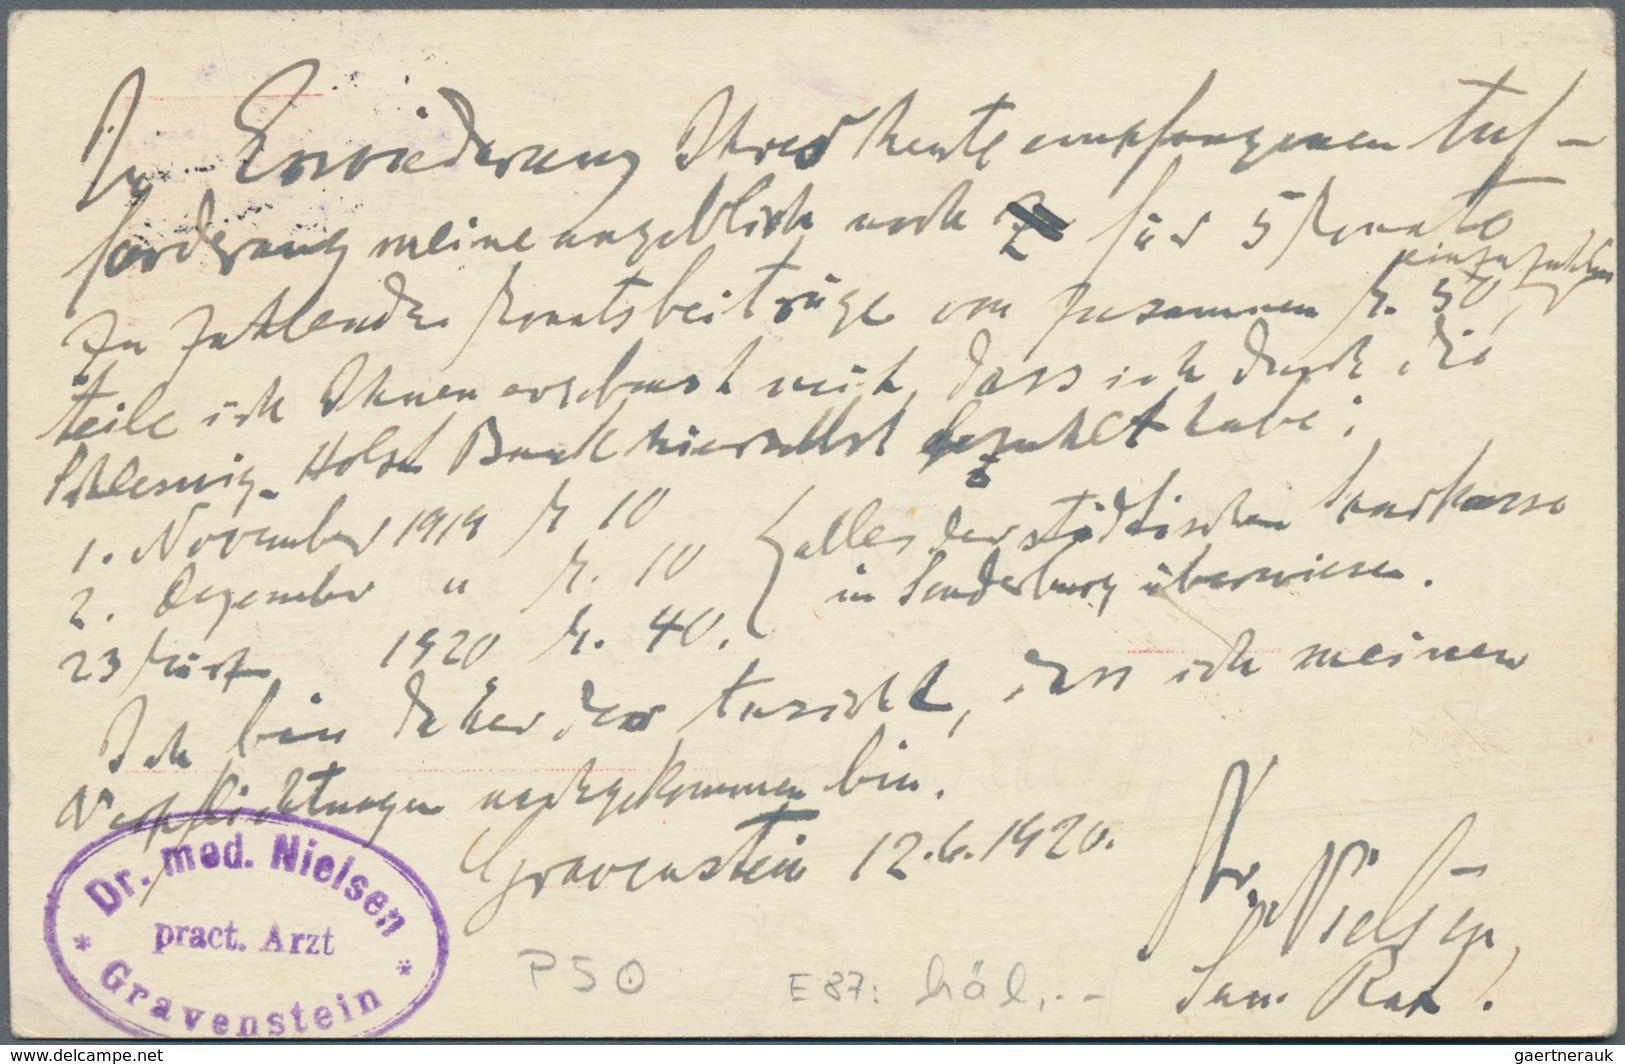 In Erwiederung Ihres heute empfangenen Auf-
forderung meine angeblich noch für 5 Monate
einzuzahlen
zu zahlende Monatsbeiträge von zusammen M. 50,
teile ich Ihnen ergebenst mit, dass ich durch die
Schleswig-Holst. Bank hierselbst bezahlt habe:
1. November 1919 M 10
2. Dezember " M. 10
23 März 1920 M. 40.
alles der städtischen Sparkasse
in Sonderburg überwiesen.
Ich bin daher der Ansicht, dass ich meinen
Verpflichtungen nachgekommen bin.
Gravenstein 12.6.1920.
Dr. Nielsen,
San. Rat.
Dr. med. Nielsen
pract. Arzt
* Gravenstein *
P50
E87:
www.delcampe.net
gaertnerauk